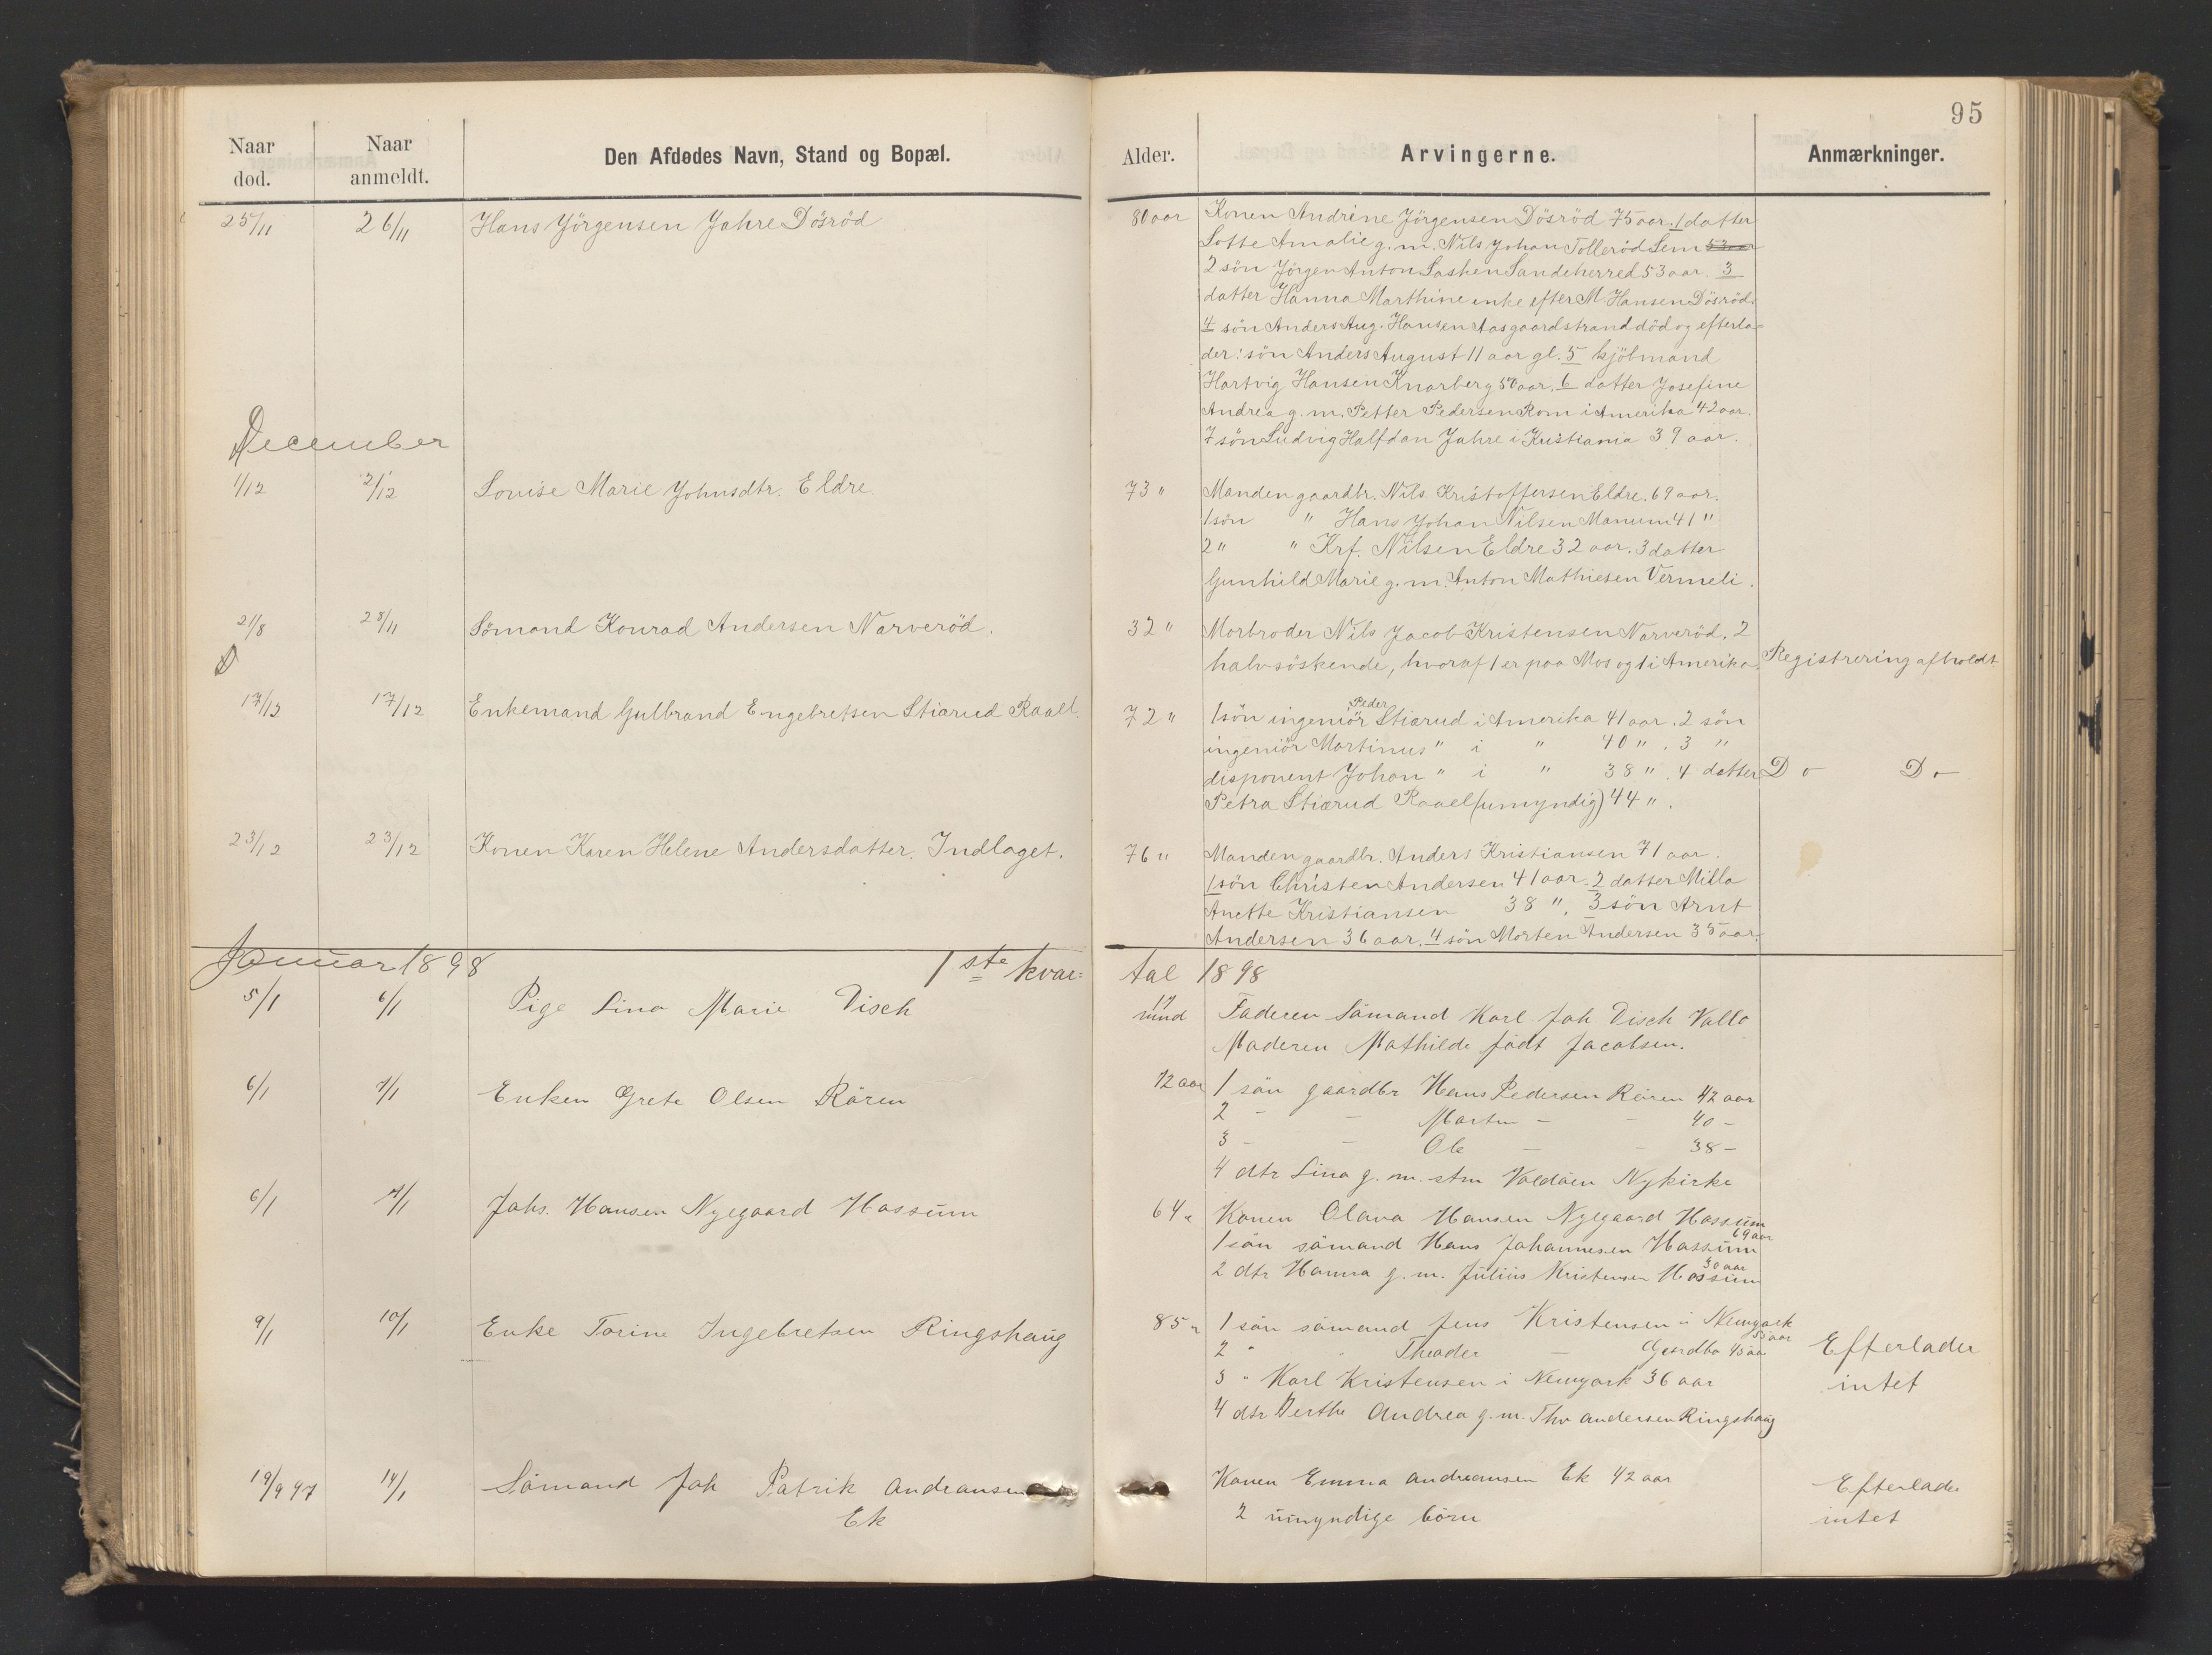 95
Naar død. Naar anmeldt. Den Afdødes Navn, Stand og Bopæl. Alder. Arvingerne. Anmærkninger.
25/11 26/11 Hans Jörgensen Jahre Dösröd 80 aar Konen Andrine Jörgensen Dösröd 75 aar. 1 datter
Lotte Amalie g. m. Nils Johan Tolleröd Sem
2 sön Jörgen Anton Sandeherred 53 aar. 3
datter Hanna Marthine enke efter M. Hansen Dösröd.
4 sön Anders Aug. Hansen Aasgaardstrand död og efterla-
der: sön Anders August 11 aar gl. 5 kjöbmand
Hartvig Hansen Knarberg 50 aar. 6 datter Josefine
Andrea g. m. Petter Pedersen Rom i Amerika 42 aar.
7 sön Ludvig Halfdan Jahre i Kristiania 39 aar.
December
1/12 2/12 Louise Marie Johnsdtr. Eldre. 73 " Manden gaardbr. Nils Kristoffersen Eldre. 69 aar.
1 sön " Hans Johan Nilsen Manum 41 "
2 " " Krf. Nilsen Eldre 32 aar. 3 datter
Gunhild Marie g. m. Anton Mathiesen Vermeli.
21/8 28/11 Sömand Konrad Andersen Narveröd. 32 " Morbroder Nils Jacob Kristensen Narveröd. 2
halvsöskende, hvoraf 1 er paa Mos og 1 i Amerika. Registrering afholdt
17/12 17/12 Enkemand Gulbrand Engebretsen Stiarud Raael. 72 " 1 sön ingeniör Peder Stiarud i Amerika 41 aar. 2 sön
ingeniör Martinus " i " 40 ". 3 "
disponent Johan " i " 38 ". 4 datter Do Do
Petra Stiarud Raael (umyndig) 44 ".
23/12 23/12 Konen Karen Helene Andersdatter. Indlaget. 76 " Manden gaardbr. Anders Kristiansen 71 aar.
1 sön Christen Andersen 41 aar. 2 datter Milla
Anette Kristiansen 38 ". 3 sön Arnt
Andersen 36 aar. 4 sön Morten Andersen 35 aar.
Januar 1898 1ste kvar=tal 1898
5/1 6/1 Pige Lina Marie Disch mnd Faderen Sömand Karl Joh Disch Vallo
Moderen Mathilde födt Jacobsen.
6/1 7/1 Enken Grete Olsen Rören 72 aar 1 sön gaardbr Hans Pedersen Rören 42 aar
2 - - Martin - - 40 -
3 - - Ole - - 38 -
4 dtr Lina g. m. stm Nykirke
6/1 7/1 Johs. Hansen Nyegaard Hassum 64 " Konen Olava Hansen Nyegaard Hassum
69 aar
1 sön sömand Hans Johannesen Hassum
30 aar
2 dtr Hanna g. m. Julius Kristensen Hassum
9/1 10/1 Enke Torine Ingebretsen Ringshaug 85 " 1 sön sömand Jens Kristensen i Newyork
55 aar
2 " " Theodor - 45 aar Efterlader
3 " Karl Kristensen i Newyork 36 aar intet
4 dtr Berthe Andrea g. m. Thv Andersen Ringshaug
19/9 97 14/1 Sömand Joh Patrik Andreansen Konen Emma Andreansen Ek 42 aar Efterlader
Ek 2 umyndige börn intet